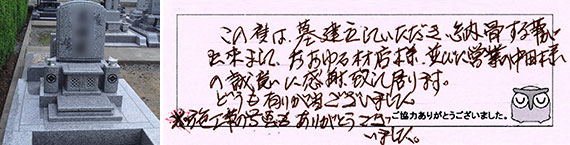 この度は、墓建立していただき、納骨する事が
出来まして、おおゆる材店様、並びに営業の中田様
の誠意に感謝致して居ります。
どうも有りが当ございました。
※施工事の写真もありがとうござ
いました。
ご協力ありがとうございました。